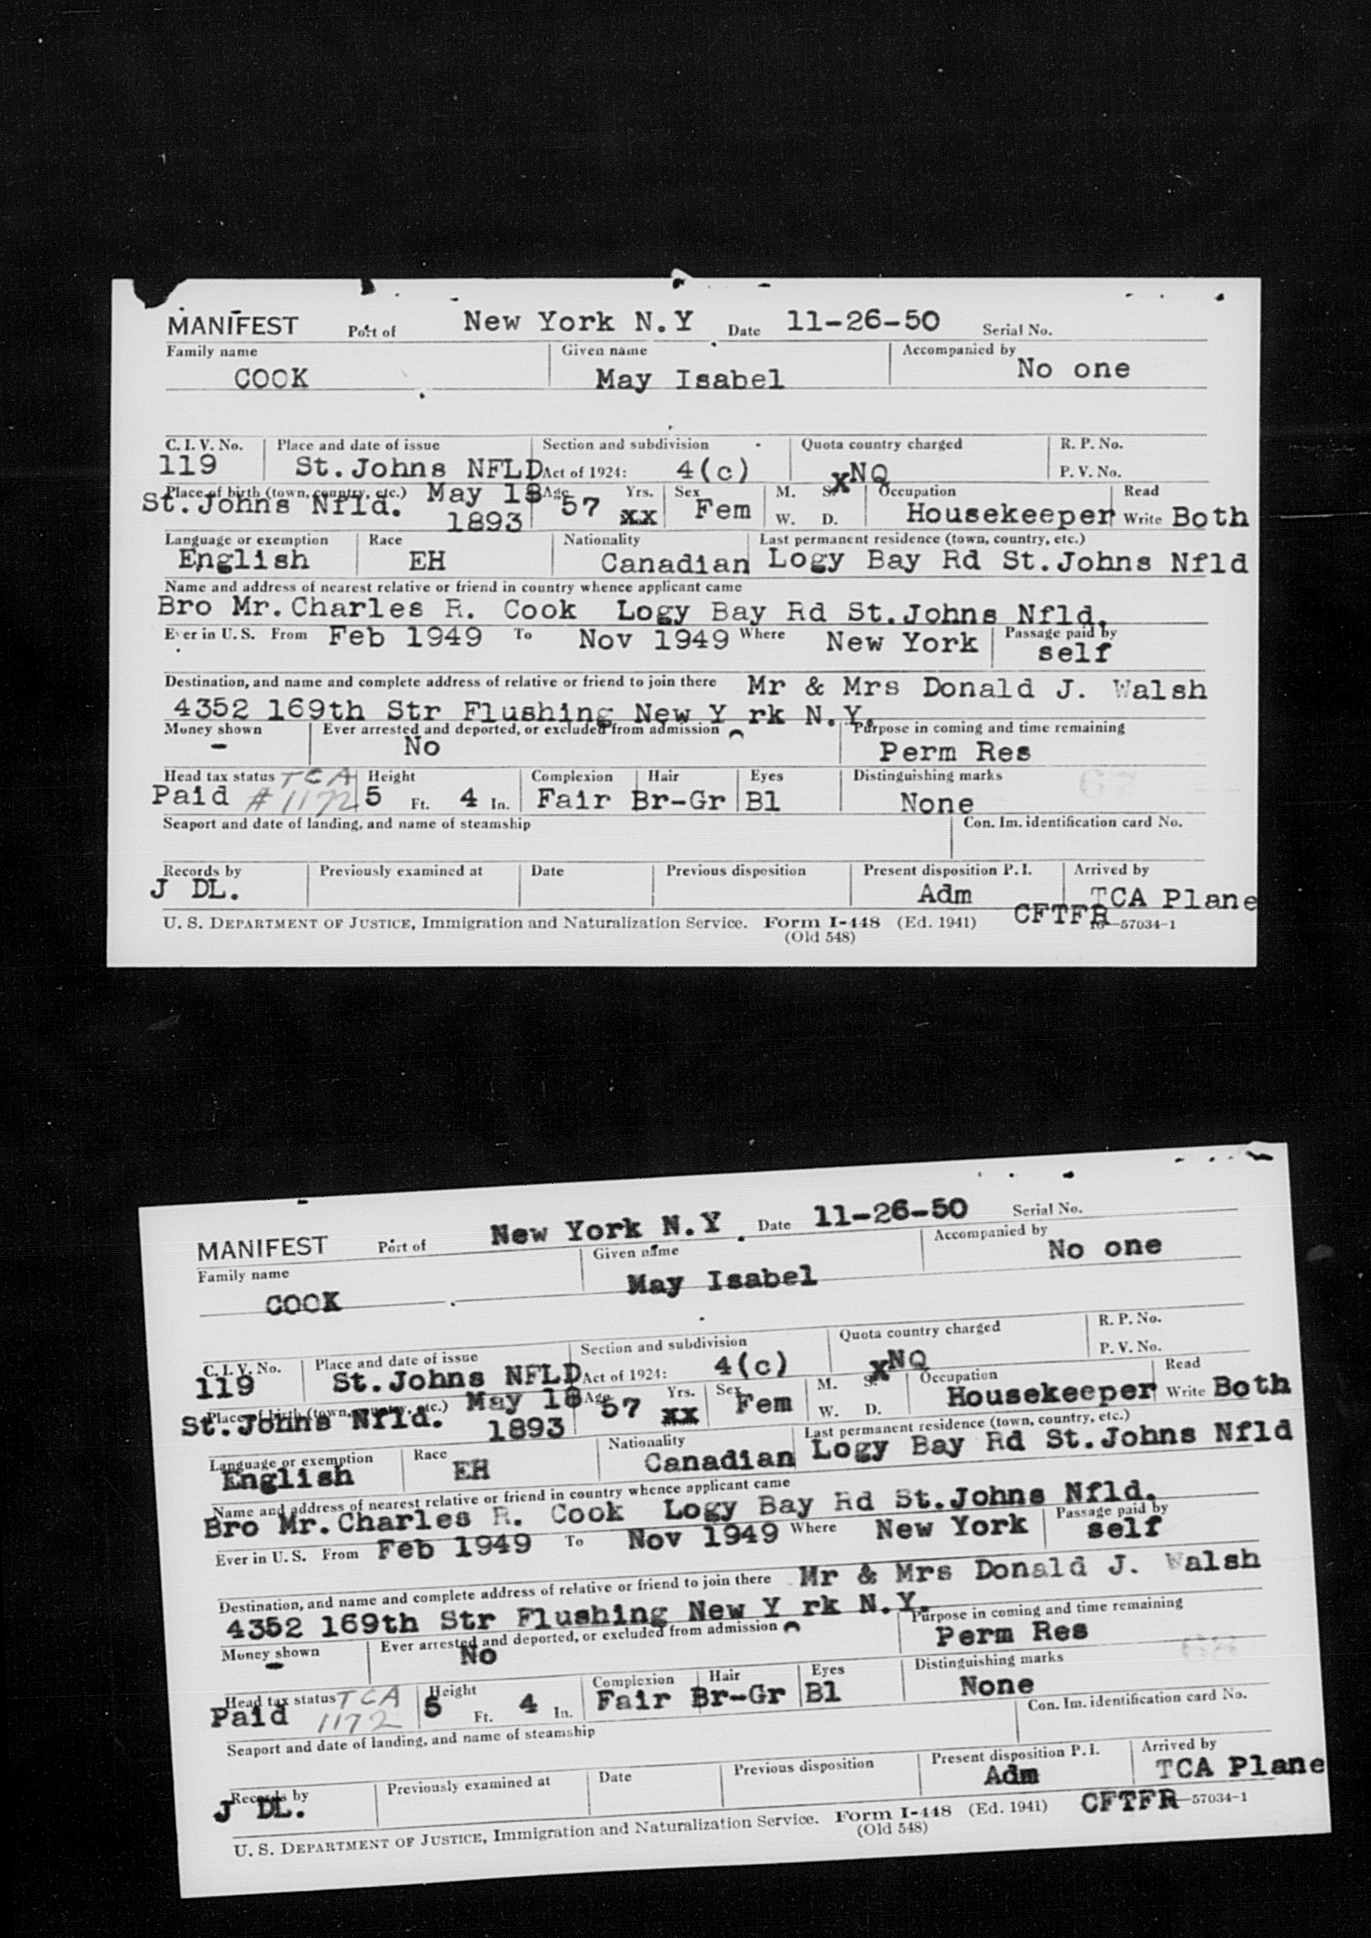 MANIFEST Port of New York N.Y Date 11-26-50 Serial No.
Family name Given name Accompanied by
COOK May Isabel No one
C. I. V. No. Place and date of issue Section and subdivision Quota country charged R. P. No.
119 St.Johns NFLD Act of 1924: 4(c) xNQ P. V. No.
Place of birth (town, country, etc.) May 18 Age Yrs. Sex M. S. Occupation Read
St.Johns Nfld. 1893 57 xx Fem W. D. Housekeeper Write Both
Language or exemption Race Nationality Last permanent residence (town, country, etc.)
English EH Canadian Logy Bay Rd St.Johns Nfld
Name and address of nearest relative or friend in country whence applicant came
Bro Mr.Charles R. Cook Logy Bay Rd St.Johns Nfld.
Ever in U. S. From Feb 1949 To Nov 1949 Where New York Passage paid by
self
Destination, and name and complete address of relative or friend to join there Mr & Mrs Donald J. Walsh
4352 169th Str Flushing New Y rk N.Y.
Money shown Ever arrested and deported, or excluded from admission Purpose in coming and time remaining
- No Perm Res
Head tax status TCA Height Complexion Hair Eyes Distinguishing marks
Paid #1172 5 Ft. 4 In. Fair Br-Gr Bl None
Seaport and date of landing, and name of steamship Con. Im. identification card No.
Records by Previously examined at Date Previous disposition Present disposition P. I. Arrived by
J DL. Adm TCA Plane
U. S. DEPARTMENT OF JUSTICE, Immigration and Naturalization Service. Form I-448 (Ed. 1941) CFTFR 16—57034-1
(Old 548)
MANIFEST Port of New York N.Y Date 11-26-50 Serial No.
Family name Given name Accompanied by
COOK May Isabel No one
C. I. V. No. Place and date of issue Section and subdivision Quota country charged R. P. No.
119 St.Johns NFLD Act of 1924: 4(c) xNQ P. V. No.
Place of birth (town, country, etc.) May 18 Age Yrs. Sex M. S. Occupation Read
St.Johns Nfld. 1893 57 xx Fem W. D. Housekeeper Write Both
Language or exemption Race Nationality Last permanent residence (town, country, etc.)
English EH Canadian Logy Bay Rd St.Johns Nfld
Name and address of nearest relative or friend in country whence applicant came
Bro Mr.Charles R. Cook Logy Bay Rd St.Johns Nfld.
Ever in U. S. From Feb 1949 To Nov 1949 Where New York Passage paid by
self
Destination, and name and complete address of relative or friend to join there Mr & Mrs Donald J. Walsh
4352 169th Str Flushing New Y rk N.Y.
Money shown Ever arrested and deported, or excluded from admission Purpose in coming and time remaining
- No Perm Res
Head tax status TCA Height Complexion Hair Eyes Distinguishing marks
Paid 1172 5 Ft. 4 In. Fair Br-Gr Bl None
Seaport and date of landing, and name of steamship Con. Im. identification card No.
Records by Previously examined at Date Previous disposition Present disposition P. I. Arrived by
J DL. Adm TCA Plane
U. S. DEPARTMENT OF JUSTICE, Immigration and Naturalization Service. Form I-448 (Ed. 1941) CFTFR —57034-1
(Old 548)